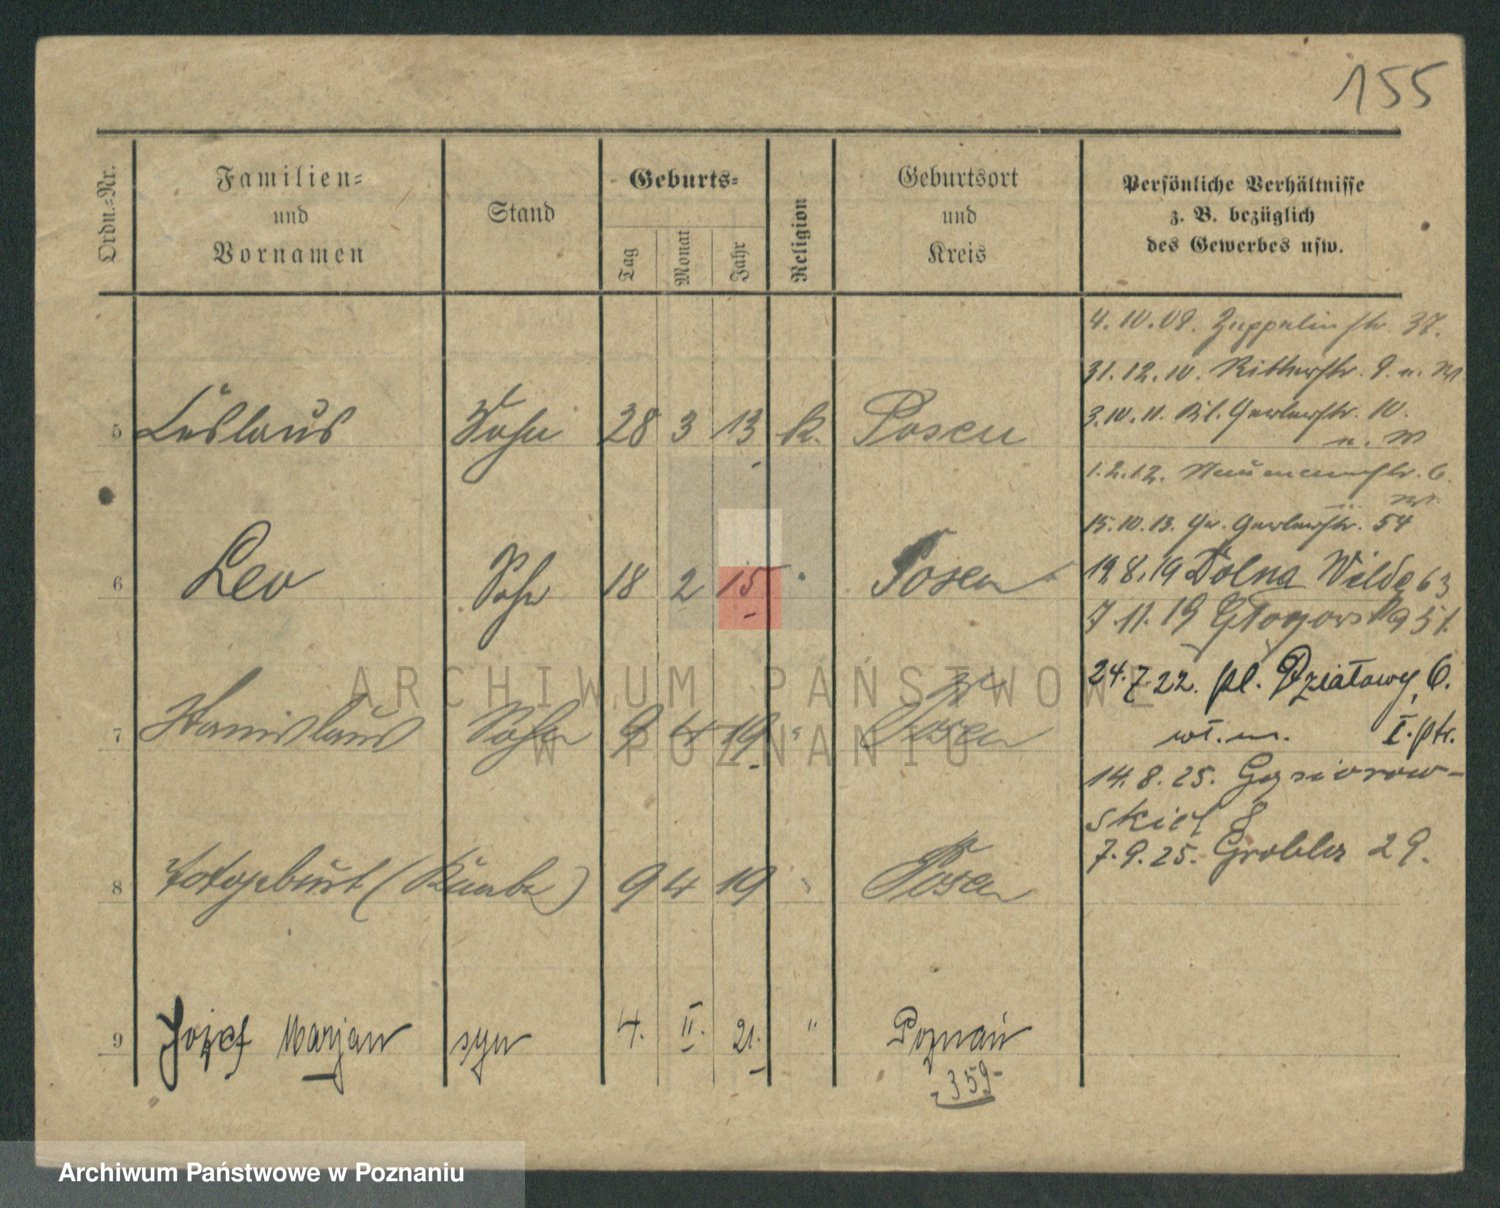 155
Ordn.=Nr.
Familien=
und
Vornamen
Stand
Geburts=
Tag
Monat
Jahr
Religion
Geburtsort
und
Kreis
Persönliche Verhältnisse
z. B. bezüglich
des Gewerbes usw.
4. 10. 09. Zeppelinstr. 37.
31. 12. 10. Ritterstr. 9. u. M
5 Ceslaus Sohn 28 3 13 k. Posen
3. 10. 11. Kl. Gerberstr. 10.
u. M
1. 2. 12. Naumannstr. 6.
15. 10. 13. Gr. Gerberstr. 54
6 Leo Sohn 18 2 15 " Posen
19. 8. 19 Dolna Wilde 63
7. 11. 19 Głogowska 51.
24. 7 22. pl. Działowy 6.
wł. m. I. ptr.
7 Stanislaus Sohn 9 4 19 " Posen
14. 8. 25. Gąsiorow-
skich 8
7. 9. 25. Grobla 29.
8 Totgeburt (Knabe) 9 4 19 " Posen
9 Józef Marjan syn 4. II. 21. " Poznań
359
ARCHIWUM PAŃSTWOWE
W POZNANIU
Archiwum Państwowe w Poznaniu